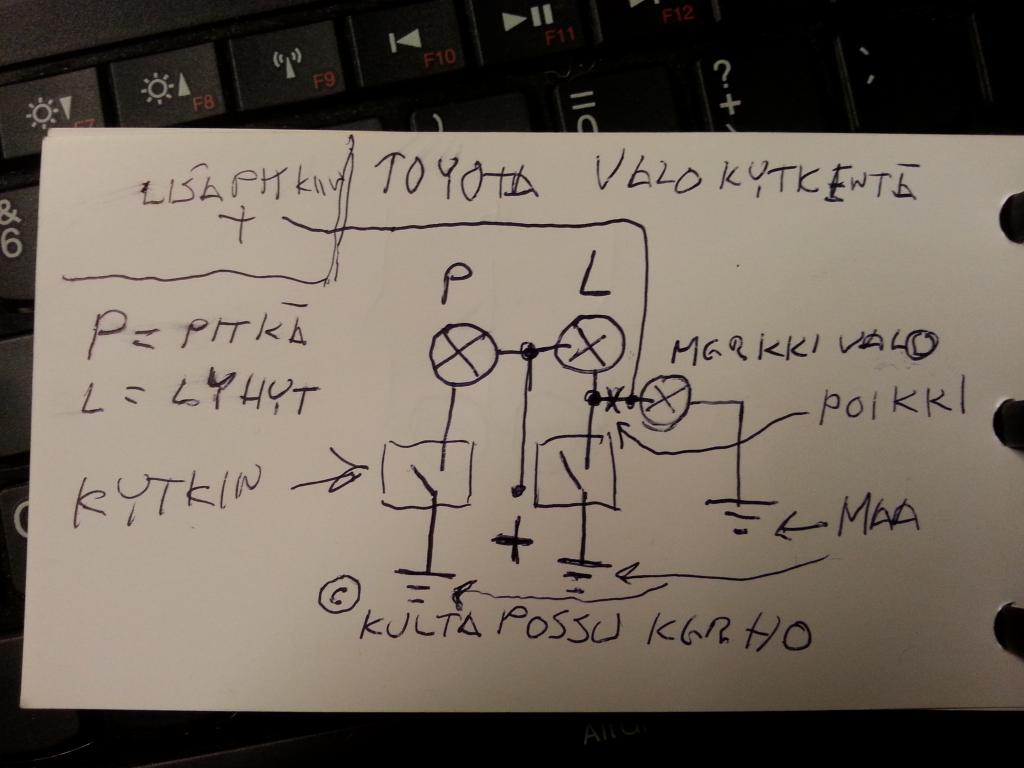 F7 F8 F9 F10 F11 F12
& 6
? +
=
LISÄPITKIIN
+
TOYOTA VALOKYTKENTÄ
P L
P = PITKÄ
L = LYHYT
MERKKIVALO
POIKKI
KYTKIN
+
MAA
© KULTA POSSU KERHO
Alt Gr